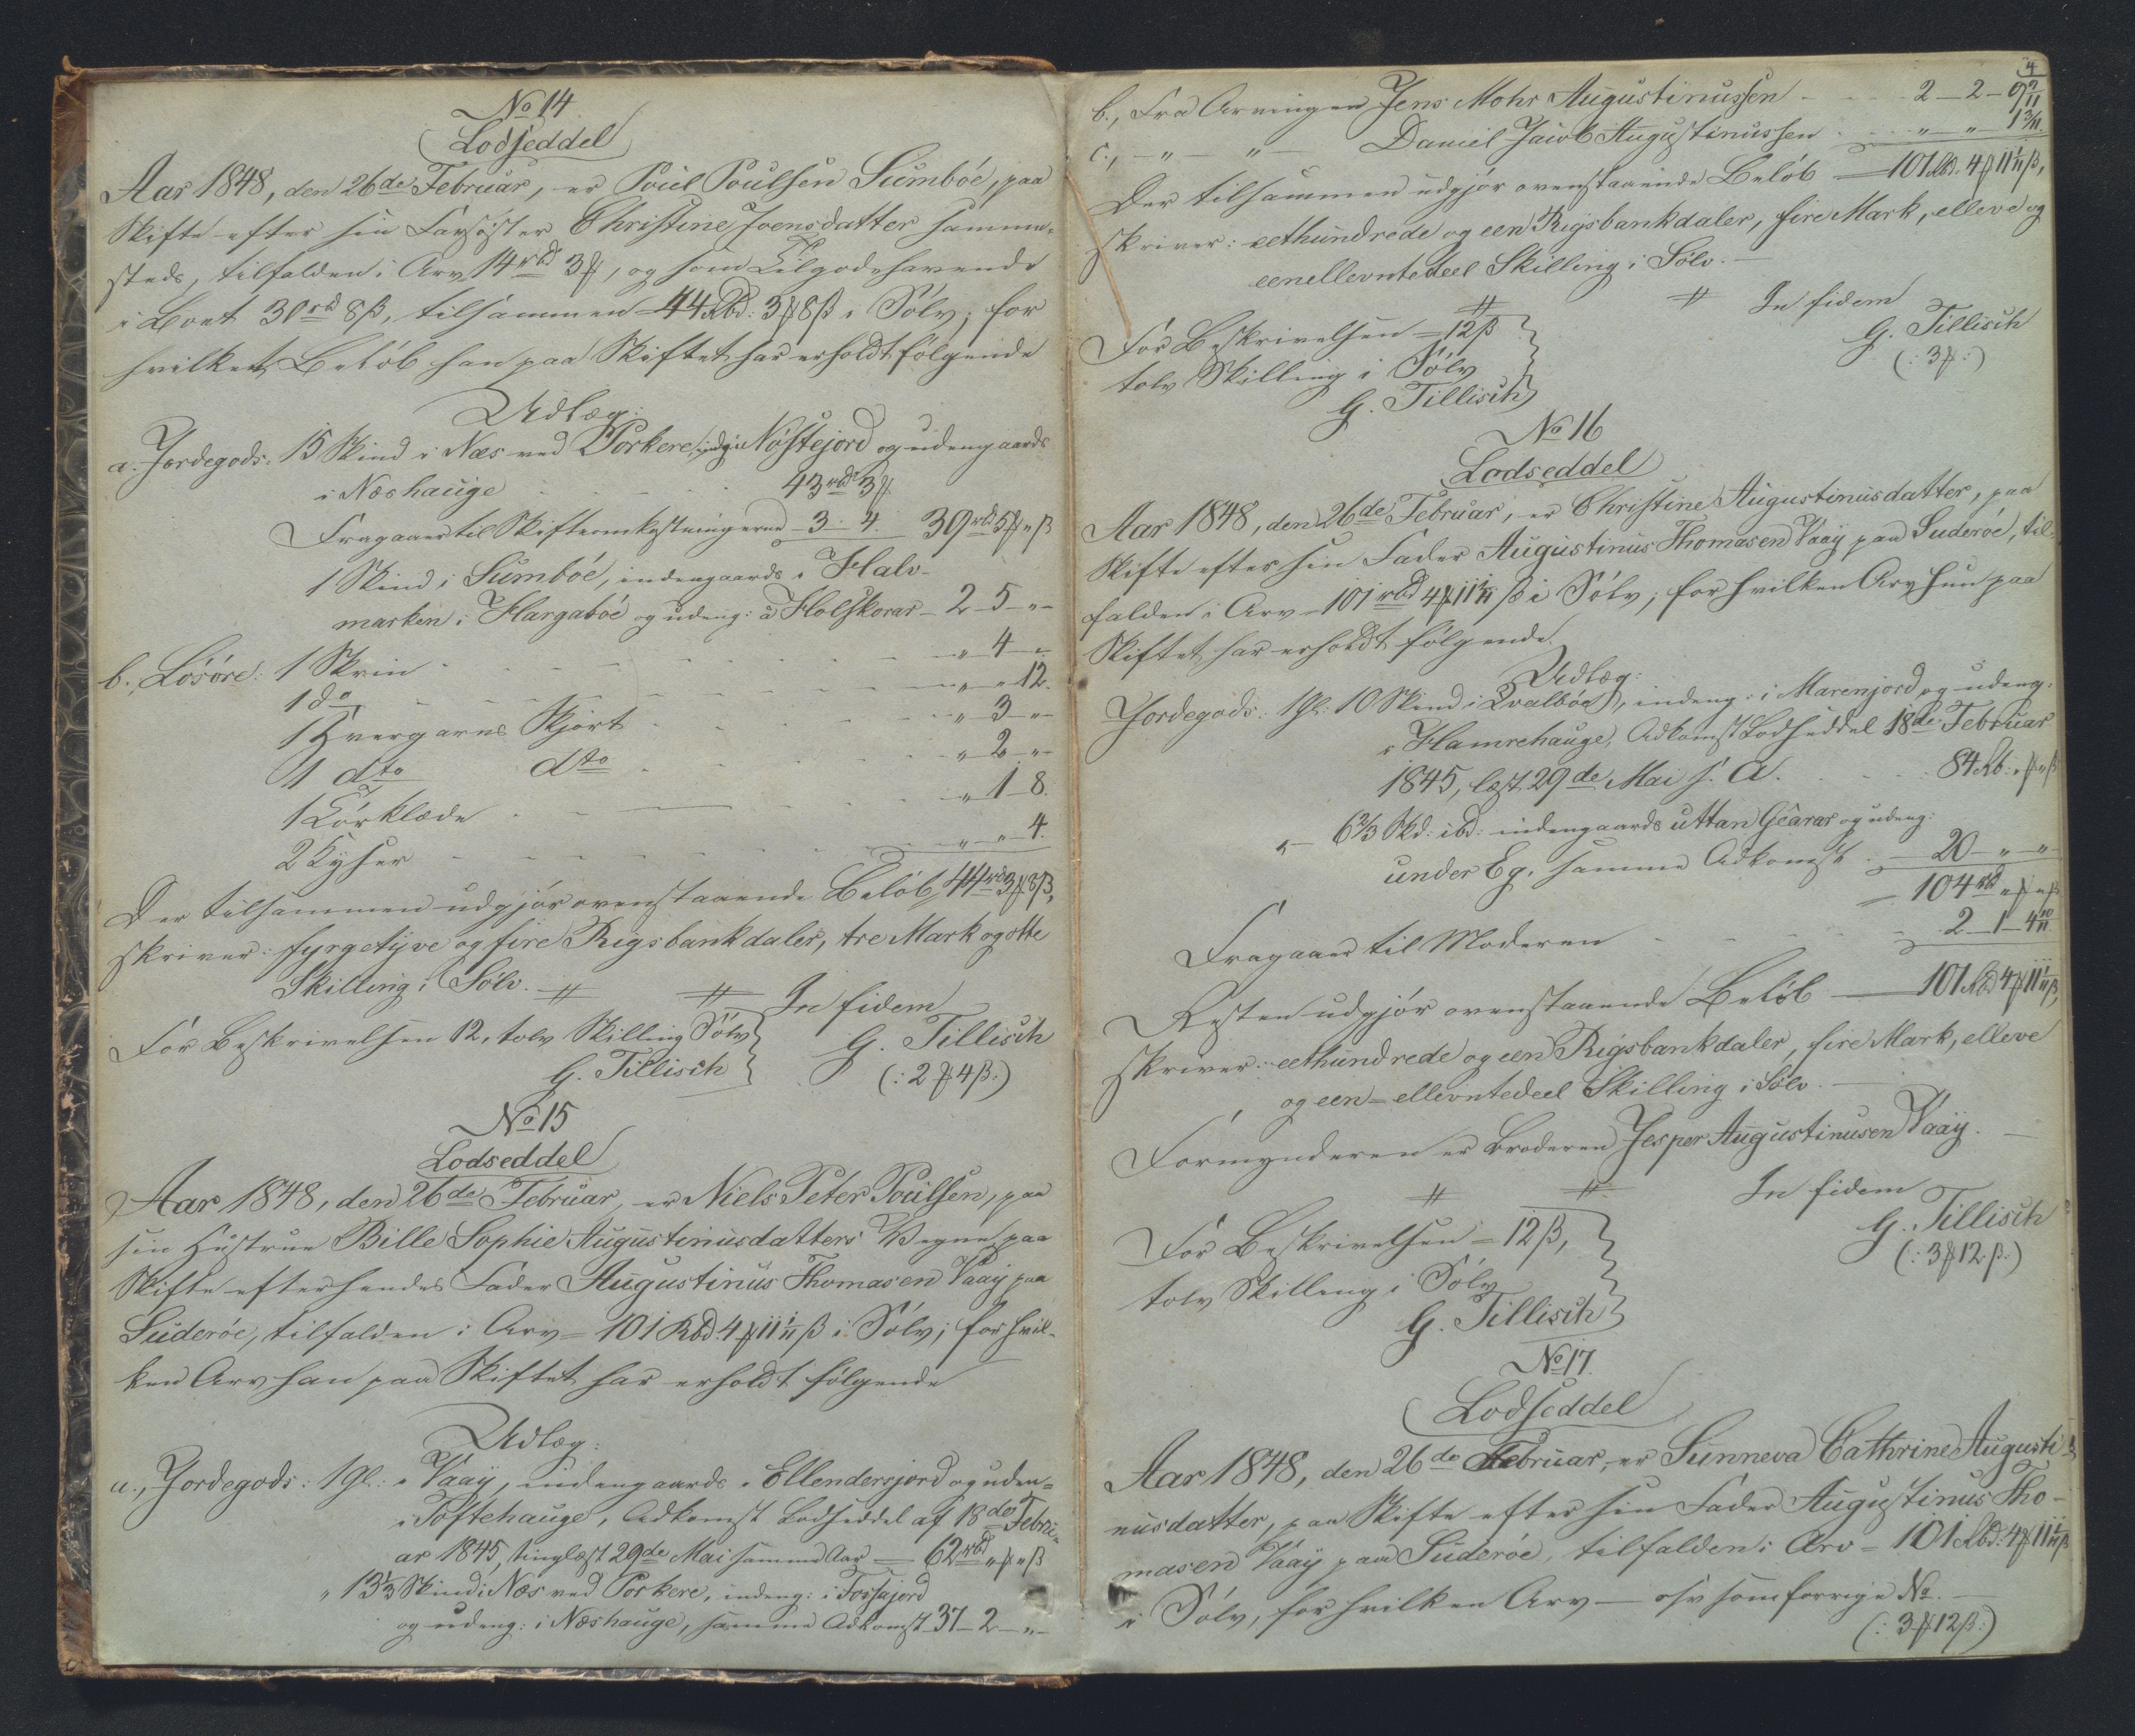 No 14
Lodseddel
Aar 1848, den 26de Februar, er Poul Poulsen Sumböe, paa
Skifte efter sin Farsöster Christine Joensdatter samme-
steds, tilfalden i Arv 14 rbd 3 ℳ, og som Tilgodehavende
i Boet 30 rbd 8 ß, tilsammen 44 Rbd: 3 ℳ 8 ß i Sölv; for
hvilket Belöb han paa Skiftet har erholdt fölgende
Udlæg:
a. Jordegods: 15 Skind i Næs ved Porkere, indg: i Nöstejord og udengaards
i Næshauge 43 rbd 3 ℳ
Fragaaer til Skifteomkostningerne 3 - 4. 39 rbd 5 ℳ " ß
1 Skind i Sumböe, indengaards i Halv-
marken i Hargaböe og udeng: å Holskorar - 2 - 5 - "
b. Lösöre: 1 Skrin " 4 "
1 do " " 12.
1 Hvergarns Skjort " 3 "
1 dto dto " 2 "
1 Törklæde " 1 - 8.
2 Kyser " " 4.
Der tilsammen udgjör ovenstaaende Belöb 44 rbd 3 ℳ 8 ß,
skriver: fyrgetyve og fire Rigsbankdaler, tre Mark og otte
Skilling i Sölv.
In fidem
For Beskrivelsen 12, tolv Skilling Sölv
G. Tillisch
G. Tillisch
(: 2 ℳ 4 ß :)
No 15
Lodseddel
Aar 1848, den 26de Februar, er Niels Peter Poulsen, paa
sin Hustrue Bille Sophie Augustinusdatters Vegne, paa
Skifte efter hendes Fader Augustinus Thomasen Vaay paa
Suderöe, tilfalden i Arv = 101 Rbd: 4 ℳ 11 1/11 ß i Sölv; for hvil-
ken Arv han paa Skiftet har erholdt fölgende
Udlæg:
a., Jordegods: 1 Gl: i Vaay, indengaards i Ellendersjord og uden=
i Töftehauge, Adkomst Lodseddel af 18de Febru-
ar 1845, tinglæst 29de Mai samme Aar = 62 rbd " ℳ " ß
" 13 1/3 Skind i Næs ved Porkere, indeng: i Fossajord
og udeng: i Næshauge, samme Adkomst 37 - 2 - "
4
b., Fra Arvingen Jens Mohr Augustinussen 2 - 2 - 9 2/11
c., - " - " - Daniel Jacob Augustinussen " - " - 1 3/11.
Der tilsammen udgjör ovenstaaende Belöb = 101 Rbd. 4 ℳ 11 1/11 ß,
skriver: eethundrede og een Rigsbankdaler, fire Mark, elleve og
eenellevntedeel Skilling i Sölv.
In fidem
For Beskrivelsen = 12 ß
G. Tillisch
tolv Skilling i Sölv
(: 3 ℳ :)
G. Tillisch
No 16
Lodseddel
Aar 1848, den 26de Februar, er Christine Augustinusdatter, paa
Skifte efter sin Fader Augustinus Thomasen Vaay paa Suderöe, til-
falden i Arv = 101 rbd 4 ℳ 11 1/11 ß i Sölv; for hvilken Arv hun paa
Skiftet har erholdt fölgende
Udlæg:
Jordegods: 1 Gl: 10 Skind i Qvalböe, indeng: i Marenjord og udeng:
i Hamrehauge, Adkomst Lodseddel 18de Februar
1845, læst 29de Mai s. A. 84 Rb: " ℳ " ß
" - 6 2/3 Skd: ibd: indengaards uttan Gearar og udeng:
under Eg, samme Adkomst 20 - " - "
104 rbd " ℳ " ß
Fragaaer til Moderen 2 - 1 - 4 10/11
Resten udgjör ovenstaaende Belöb 101 Rbd 4 ℳ 11 1/11 ß,
skriver: eethundrede og een Rigsbankdaler, fire Mark, elleve
og een=ellevntedeel Skilling i Sölv.
Formynderen er Broderen Jesper Augustinusen Vaay.
In fidem
For Beskrivelsen = 12 ß,
G. Tillisch
tolv Skilling i Sölv
(: 3 ℳ 12 ß :)
G. Tillisch
No 17.
Lodseddel
Aar 1848, den 26de Februar, er Sunneva Cathrine Augusti-
nusdatter, paa Skifte efter sin Fader Augustinus Tho-
masen Vaay paa Suderöe, tilfalden i Arv = 101 Rbd: 4 ℳ 11 1/11 ß
i Sölv, for hvilken Arv — osv som forrige No.
(: 3 ℳ 12 ß :)